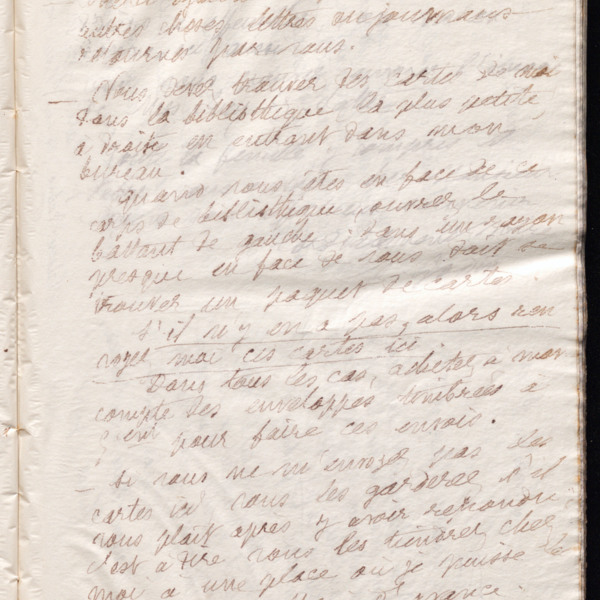 autres choses lettres ou journaux
pour vous.
— Vous devez trouver des cartes de moi
dans la bibliothèque la plus petite,
a droite en entrant dans mon
bureau.
quand vous êtes en face de ce
corps de bibliothèque, ouvrez le
battant de gauche; dans un rayon
presque en face de vous doit se
trouver un paquet de cartes.
S'il n'y en a pas, alors ren
voyez moi ces cartes ici
Dans tous les cas, achetez à mon
compte des enveloppes timbrées a
pour faire ces envois.
— Si vous ne m'envoyez pas les
cartes ici vous les garderez s'il
vous plait apres y avoir repondu
c'est a dire vous les tiendrez chez
moi a une place ou je puisse le
France.